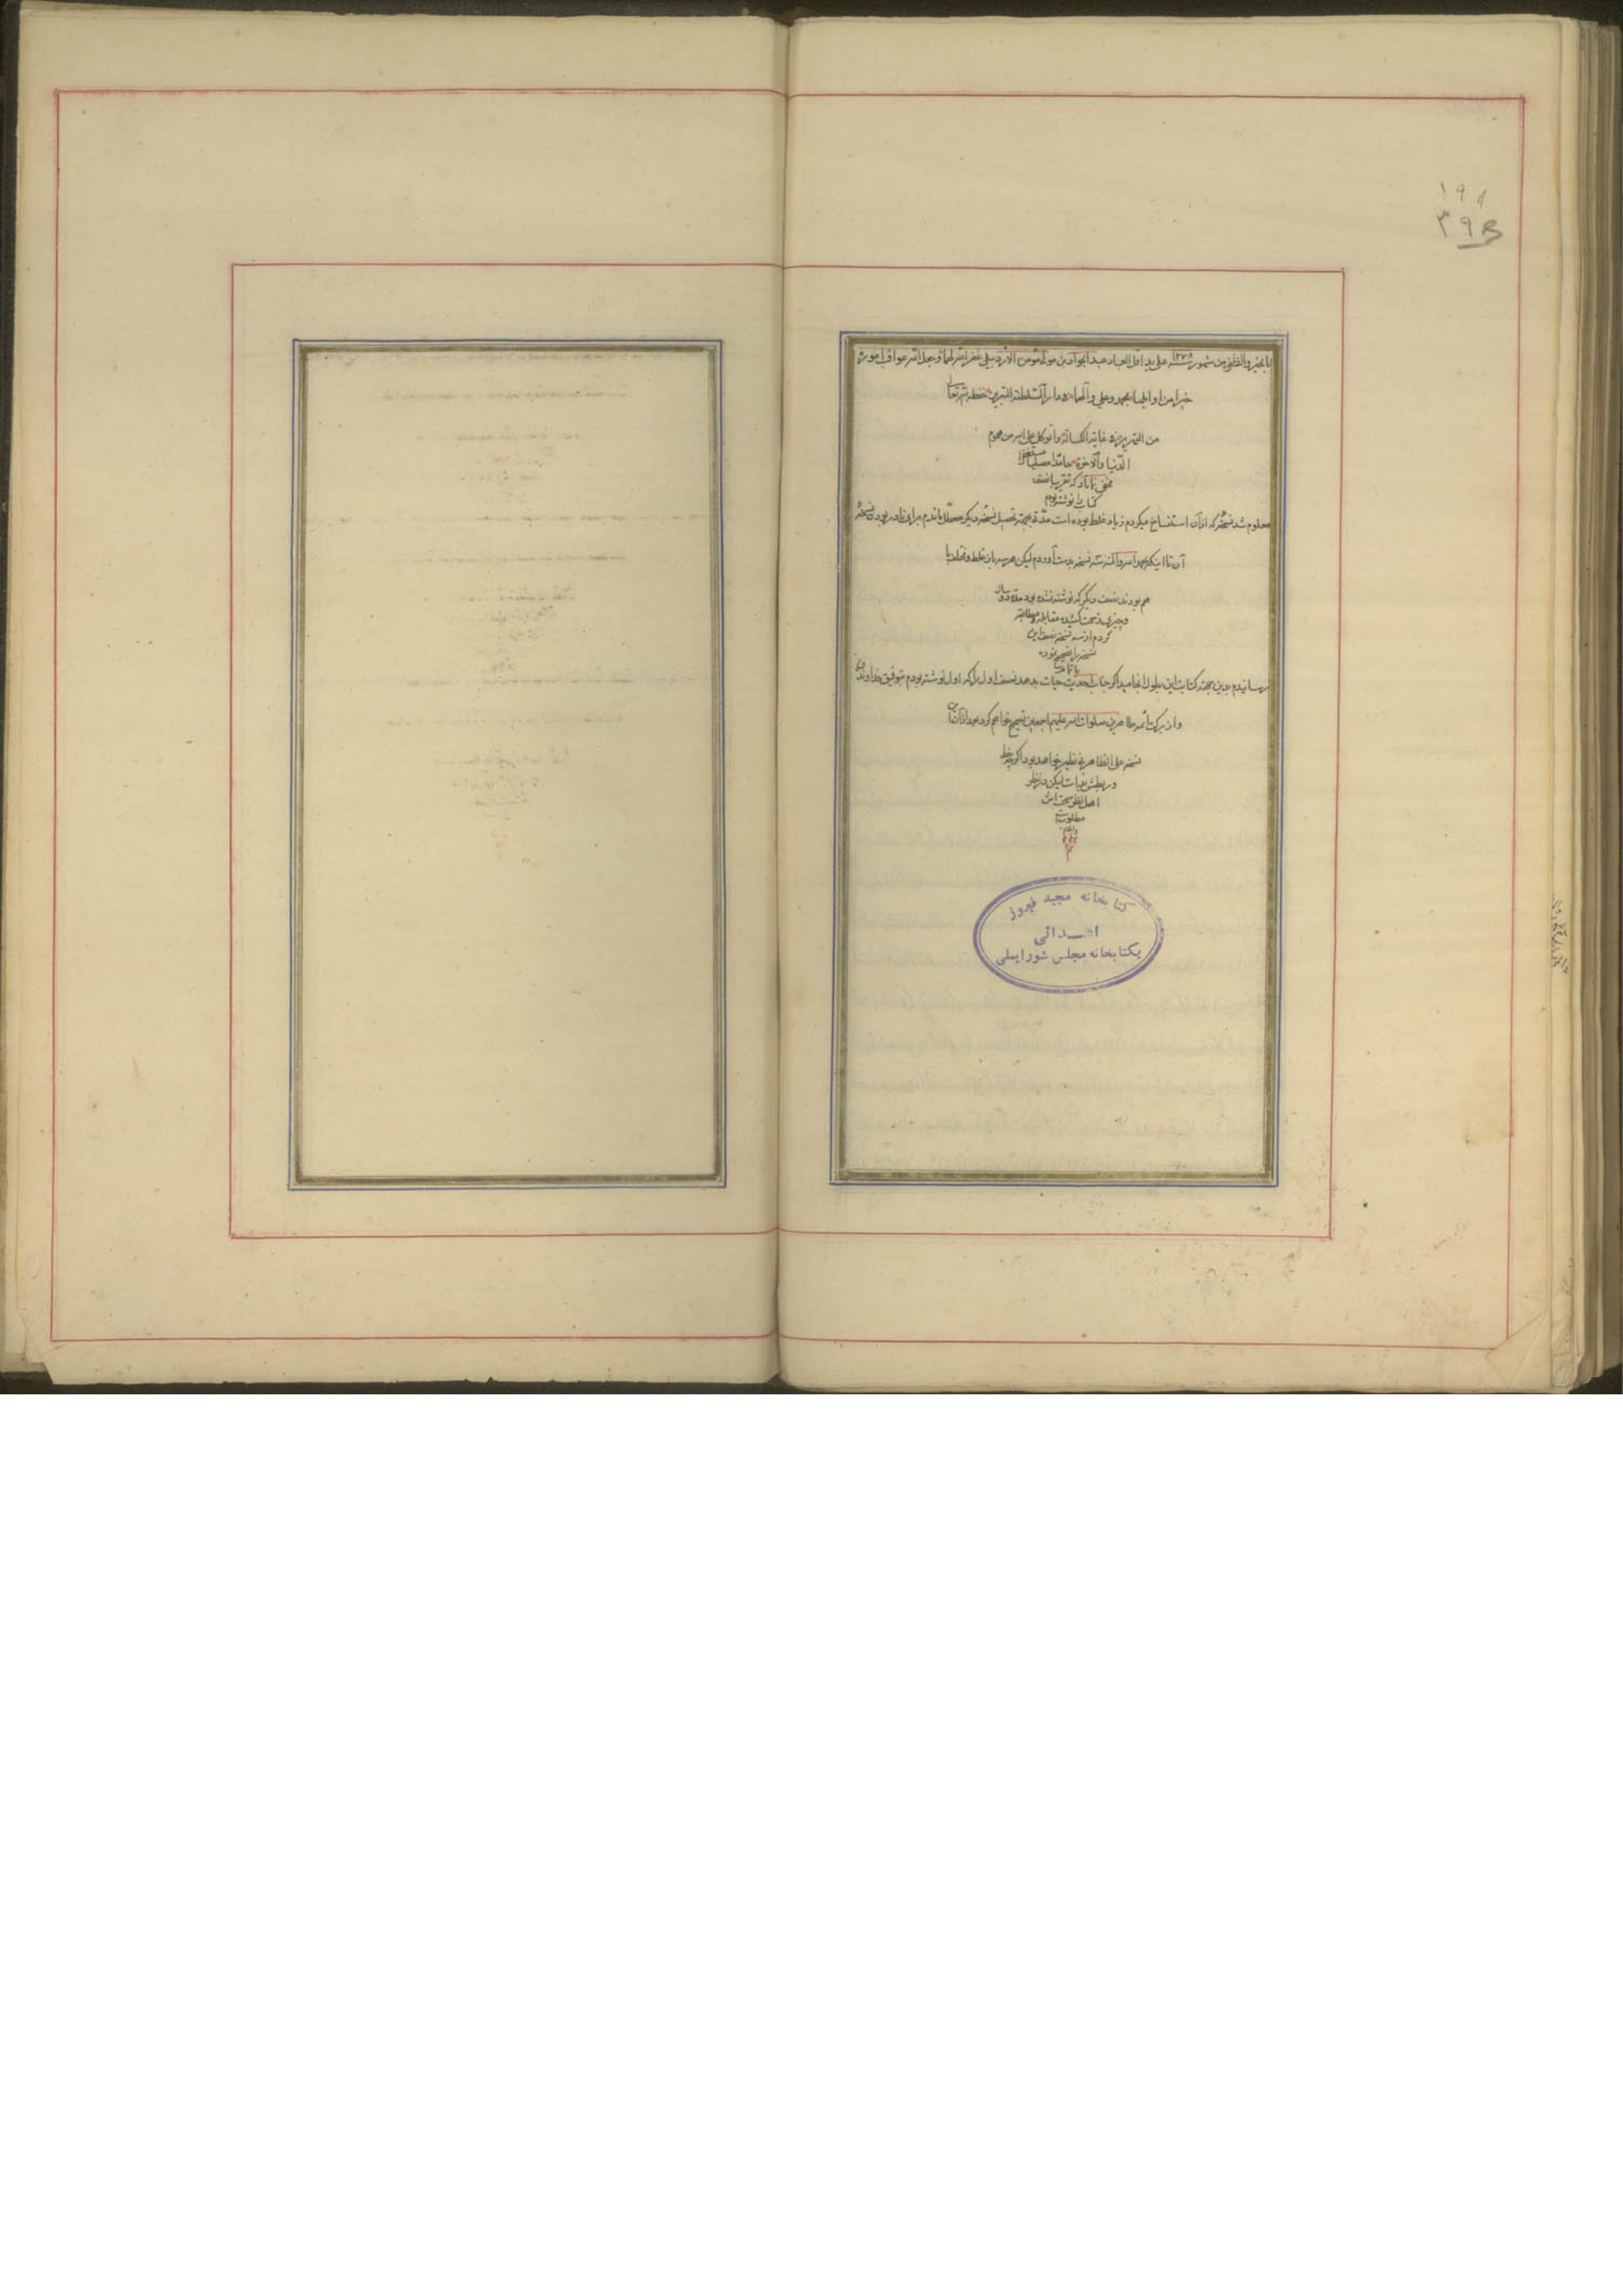 ۱۹۸
۳۹۵
بالخیر والظفر من شهور سنة ۱۲۷۸ علی ید اقل العباد عبد الجواد بن مولا مؤمن الاردبیلی غفر الله لهما وجعل الله عواقب اموره
خیرا من اوایلها بمحمد وعلی وآلهما فی دار السلطنة التبریز حفظه الله تعالی
من التبریز فی غایة الکسالة والتوکل علی الله من هموم
الدنیا والآخرة حامدا مصلیا مستغفرا
مخفی نماناد که تقریبا نصف
کتاب را نوشته بودم
معلوم شد نسخه که از آن استنساخ میکردم زیاد غلط بوده است مدة بجهة تحصیل نسخه دیگر معطل ماندم برای نادر بودن نسخه
آن تا اینکه بحمد الله والمنه سه نسخه بدست آوردم لیکن هر سه باز غلط ومختلف با
هم بودند نصف دیگر که نوشته نشده بود مدة دو سال
وچیزی زحمت کشیده مقابله ومطابقه
کردم از سه نسخه نصف این
نسخه را صحیح نموده
باتمام
رسانیدم بدین جهة کتابت این بطول انجامید اگر جناب احدیت حیات بدهد نصف اول را که اول نوشته بودم بتوفیق خداوند
واز برکت ائمه طاهرین صلوات الله علیهم اجمعین تصحیح خواهم کرد بعد از آن این
نسخه علی الظاهر بی نظیر خواهد بود اگر چه خط
و ربطش نیست لیکن در نظر
اهل نظر صحت این
مطلوبست
والسلام
کتابخانه مجید فیروز
اهدائی
بکتابخانه مجلس شورایملی